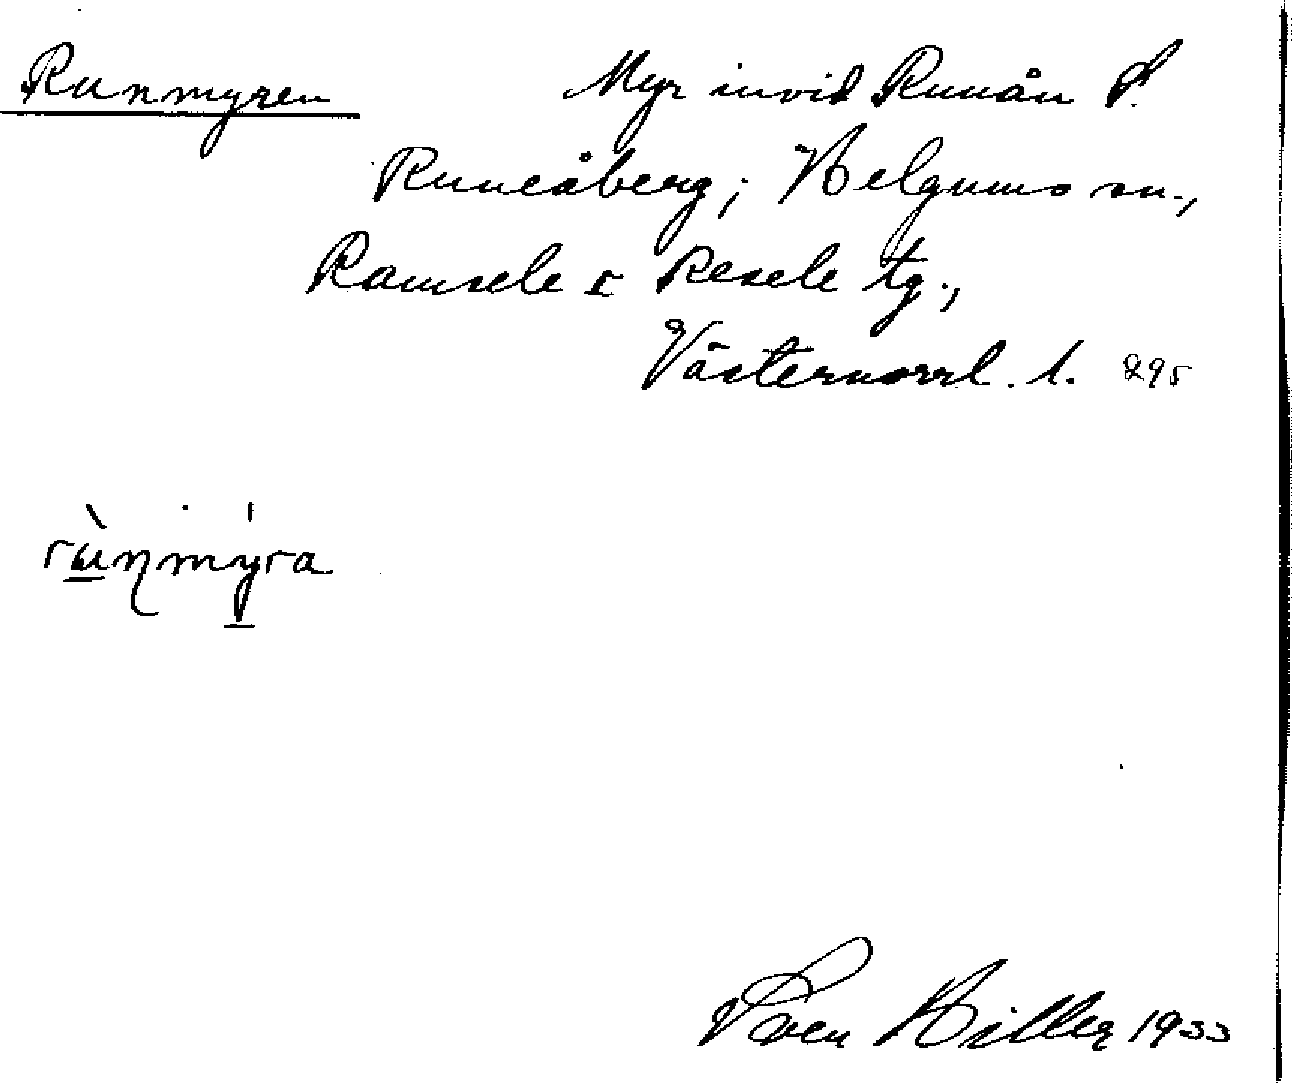 Runmyren Myr invid Runån S.
Runeåberg; Helgums sn.,
Ramsele o Resele tg.,
Västernorrl. l. 295
rùn̡mýra
Sven Hiller 1933